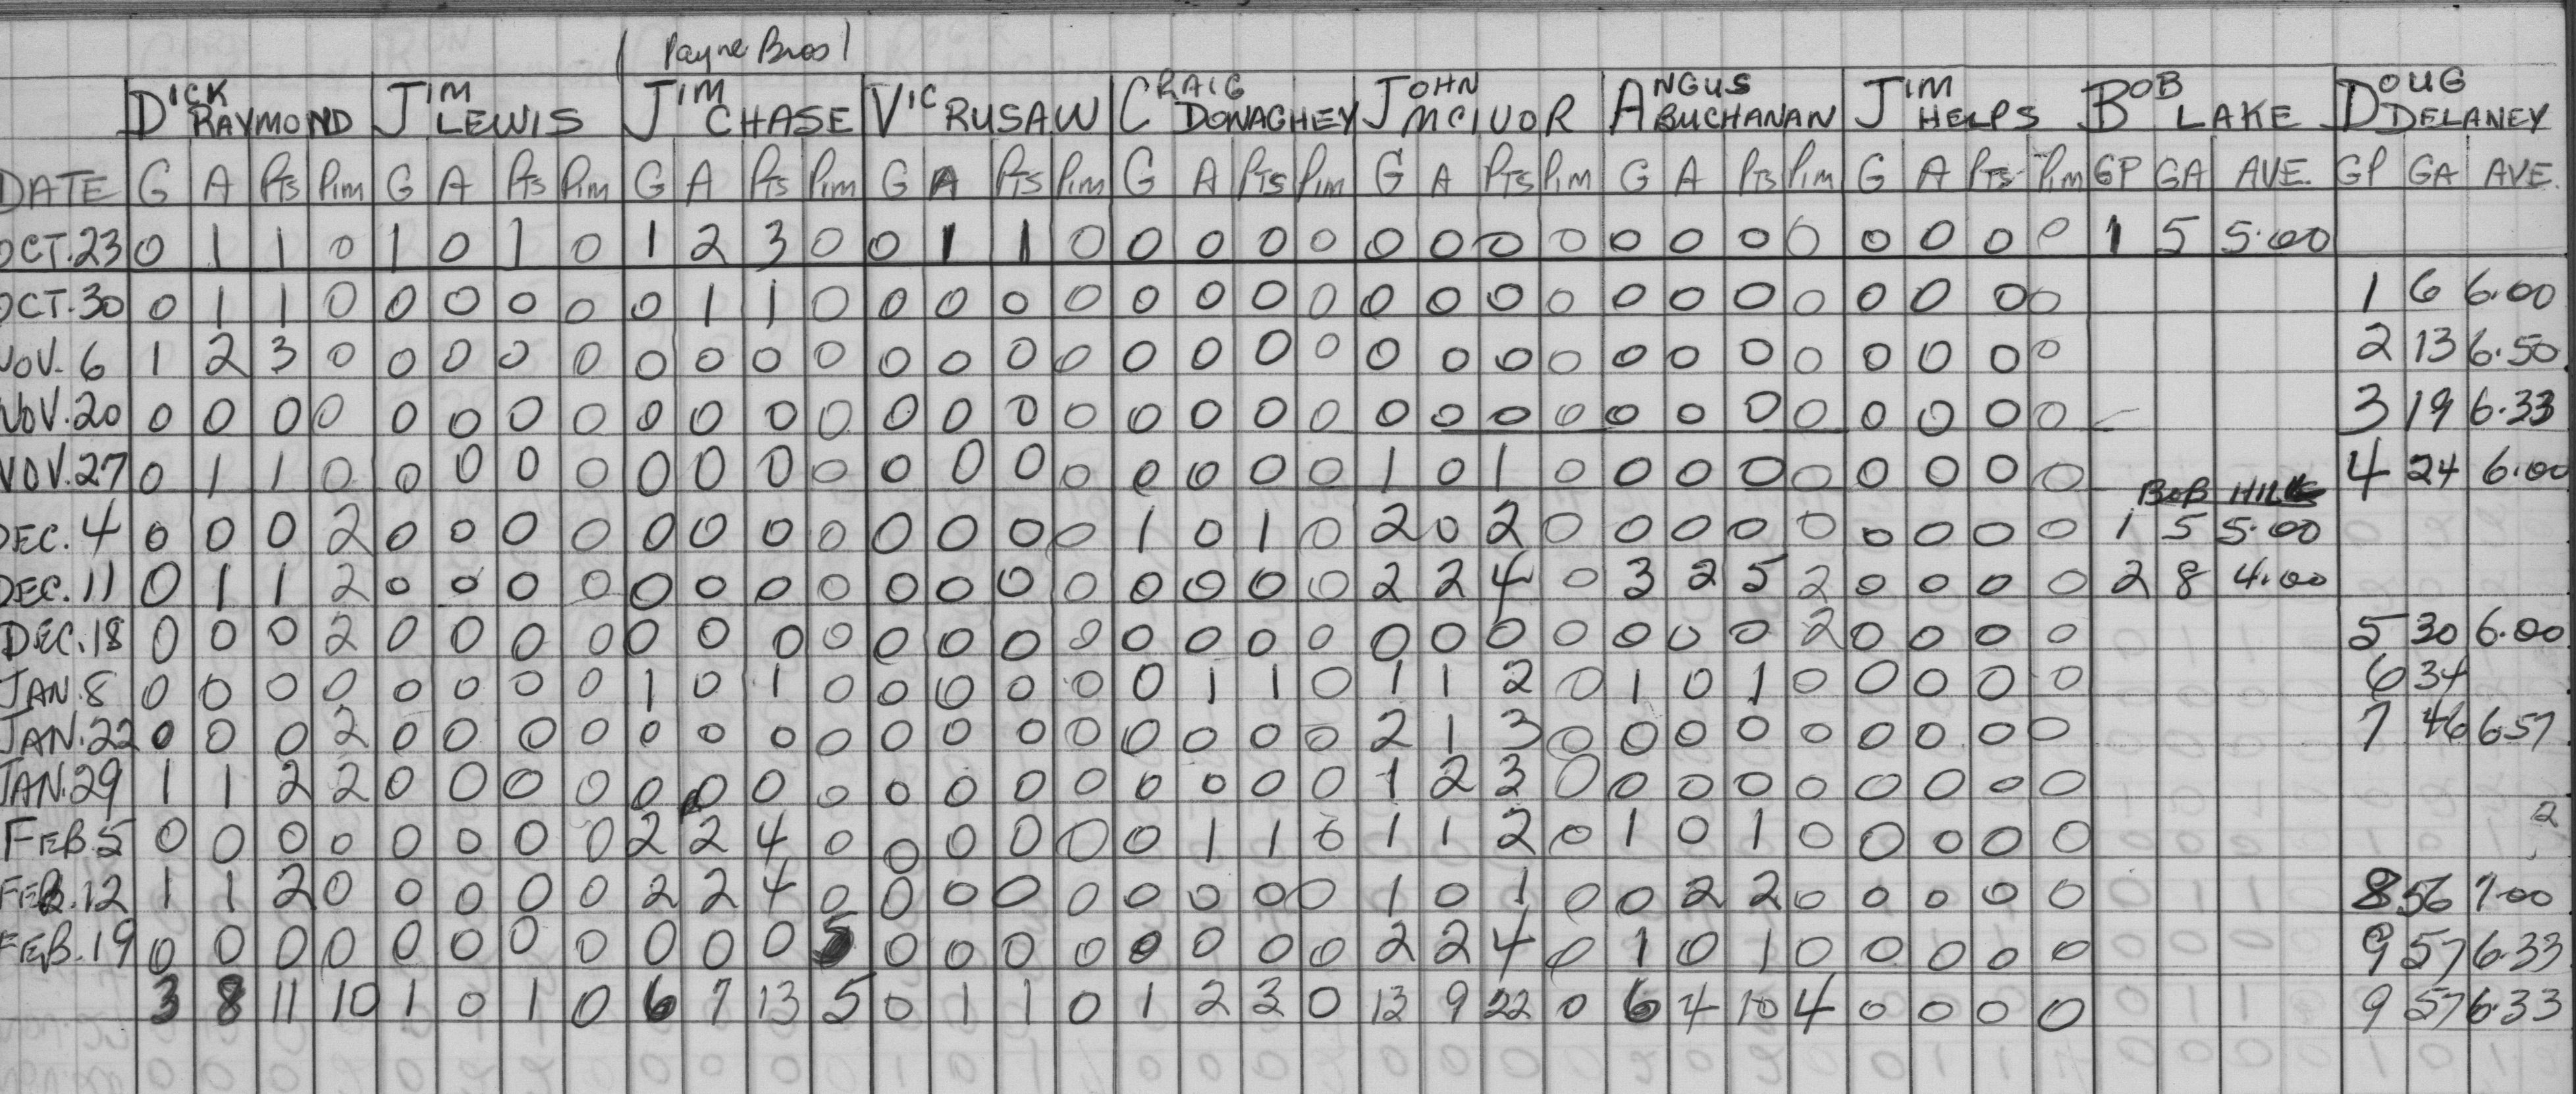 Payne Bros
DICK RAYMOND JIM LEWIS JIM CHASE VIC RUSAW CRAIG DONAGHEY JOHN MCIVOR ANGUS BUCHANAN JIM HELPS BOB LAKE DOUG DELANEY
DATE G A PTS PIM G A PTS PIM G A PTS PIM G A PTS PIM G A PTS PIM G A PTS PIM G A PTS PIM G A PTS PIM GP GA AVE. GP GA AVE.
OCT.23 0 1 1 0 1 0 1 0 1 2 3 0 0 1 1 0 0 0 0 0 0 0 0 0 0 0 0 0 0 0 0 0 1 5 5.00
OCT.30 0 1 1 0 0 0 0 0 0 1 1 0 0 0 0 0 0 0 0 0 0 0 0 0 0 0 0 0 0 0 0 0 1 6 6.00
NOV. 6 1 2 3 0 0 0 0 0 0 0 0 0 0 0 0 0 0 0 0 0 0 0 0 0 0 0 0 0 0 0 0 0 2 13 6.50
NOV.20 0 0 0 0 0 0 0 0 0 0 0 0 0 0 0 0 0 0 0 0 0 0 0 0 0 0 0 0 0 0 0 0 3 19 6.33
NOV.27 0 1 1 0 0 0 0 0 0 0 0 0 0 0 0 0 0 0 0 0 1 0 1 0 0 0 0 0 0 0 0 0 4 24 6.00
BOB HILL
DEC. 4 0 0 0 2 0 0 0 0 0 0 0 0 0 0 0 0 1 0 1 0 2 0 2 0 0 0 0 0 0 0 0 0 1 5 5.00
DEC. 11 0 1 1 2 0 0 0 0 0 0 0 0 0 0 0 0 0 0 0 0 2 2 4 0 3 2 5 2 0 0 0 0 2 8 4.00
DEC.18 0 0 0 2 0 0 0 0 0 0 0 0 0 0 0 0 0 0 0 0 0 0 0 0 0 0 0 2 0 0 0 0 5 30 6.00
JAN.8 0 0 0 0 0 0 0 0 1 0 1 0 0 0 0 0 0 1 1 0 1 1 2 0 1 0 1 0 0 0 0 0 6 34
JAN.22 0 0 0 2 0 0 0 0 0 0 0 0 0 0 0 0 0 0 0 0 2 1 3 0 0 0 0 0 0 0 0 0 7 46 6.57
JAN.29 1 1 2 2 0 0 0 0 0 0 0 0 0 0 0 0 0 0 0 0 1 2 3 0 0 0 0 0 0 0 0 0
FEB.5 0 0 0 0 0 0 0 0 2 2 4 0 0 0 0 0 0 1 1 0 1 1 2 0 1 0 1 0 0 0 0 0 2
FEB.12 1 1 2 0 0 0 0 0 2 2 4 0 0 0 0 0 0 0 0 0 1 0 1 0 0 2 2 0 0 0 0 0 8 56 7.00
FEB.19 0 0 0 0 0 0 0 0 0 0 0 5 0 0 0 0 0 0 0 0 2 2 4 0 1 0 1 0 0 0 0 0 9 57 6.33
3 8 11 10 1 0 1 0 6 7 13 5 0 1 1 0 1 2 3 0 13 9 22 0 6 4 10 4 0 0 0 0 9 57 6.33